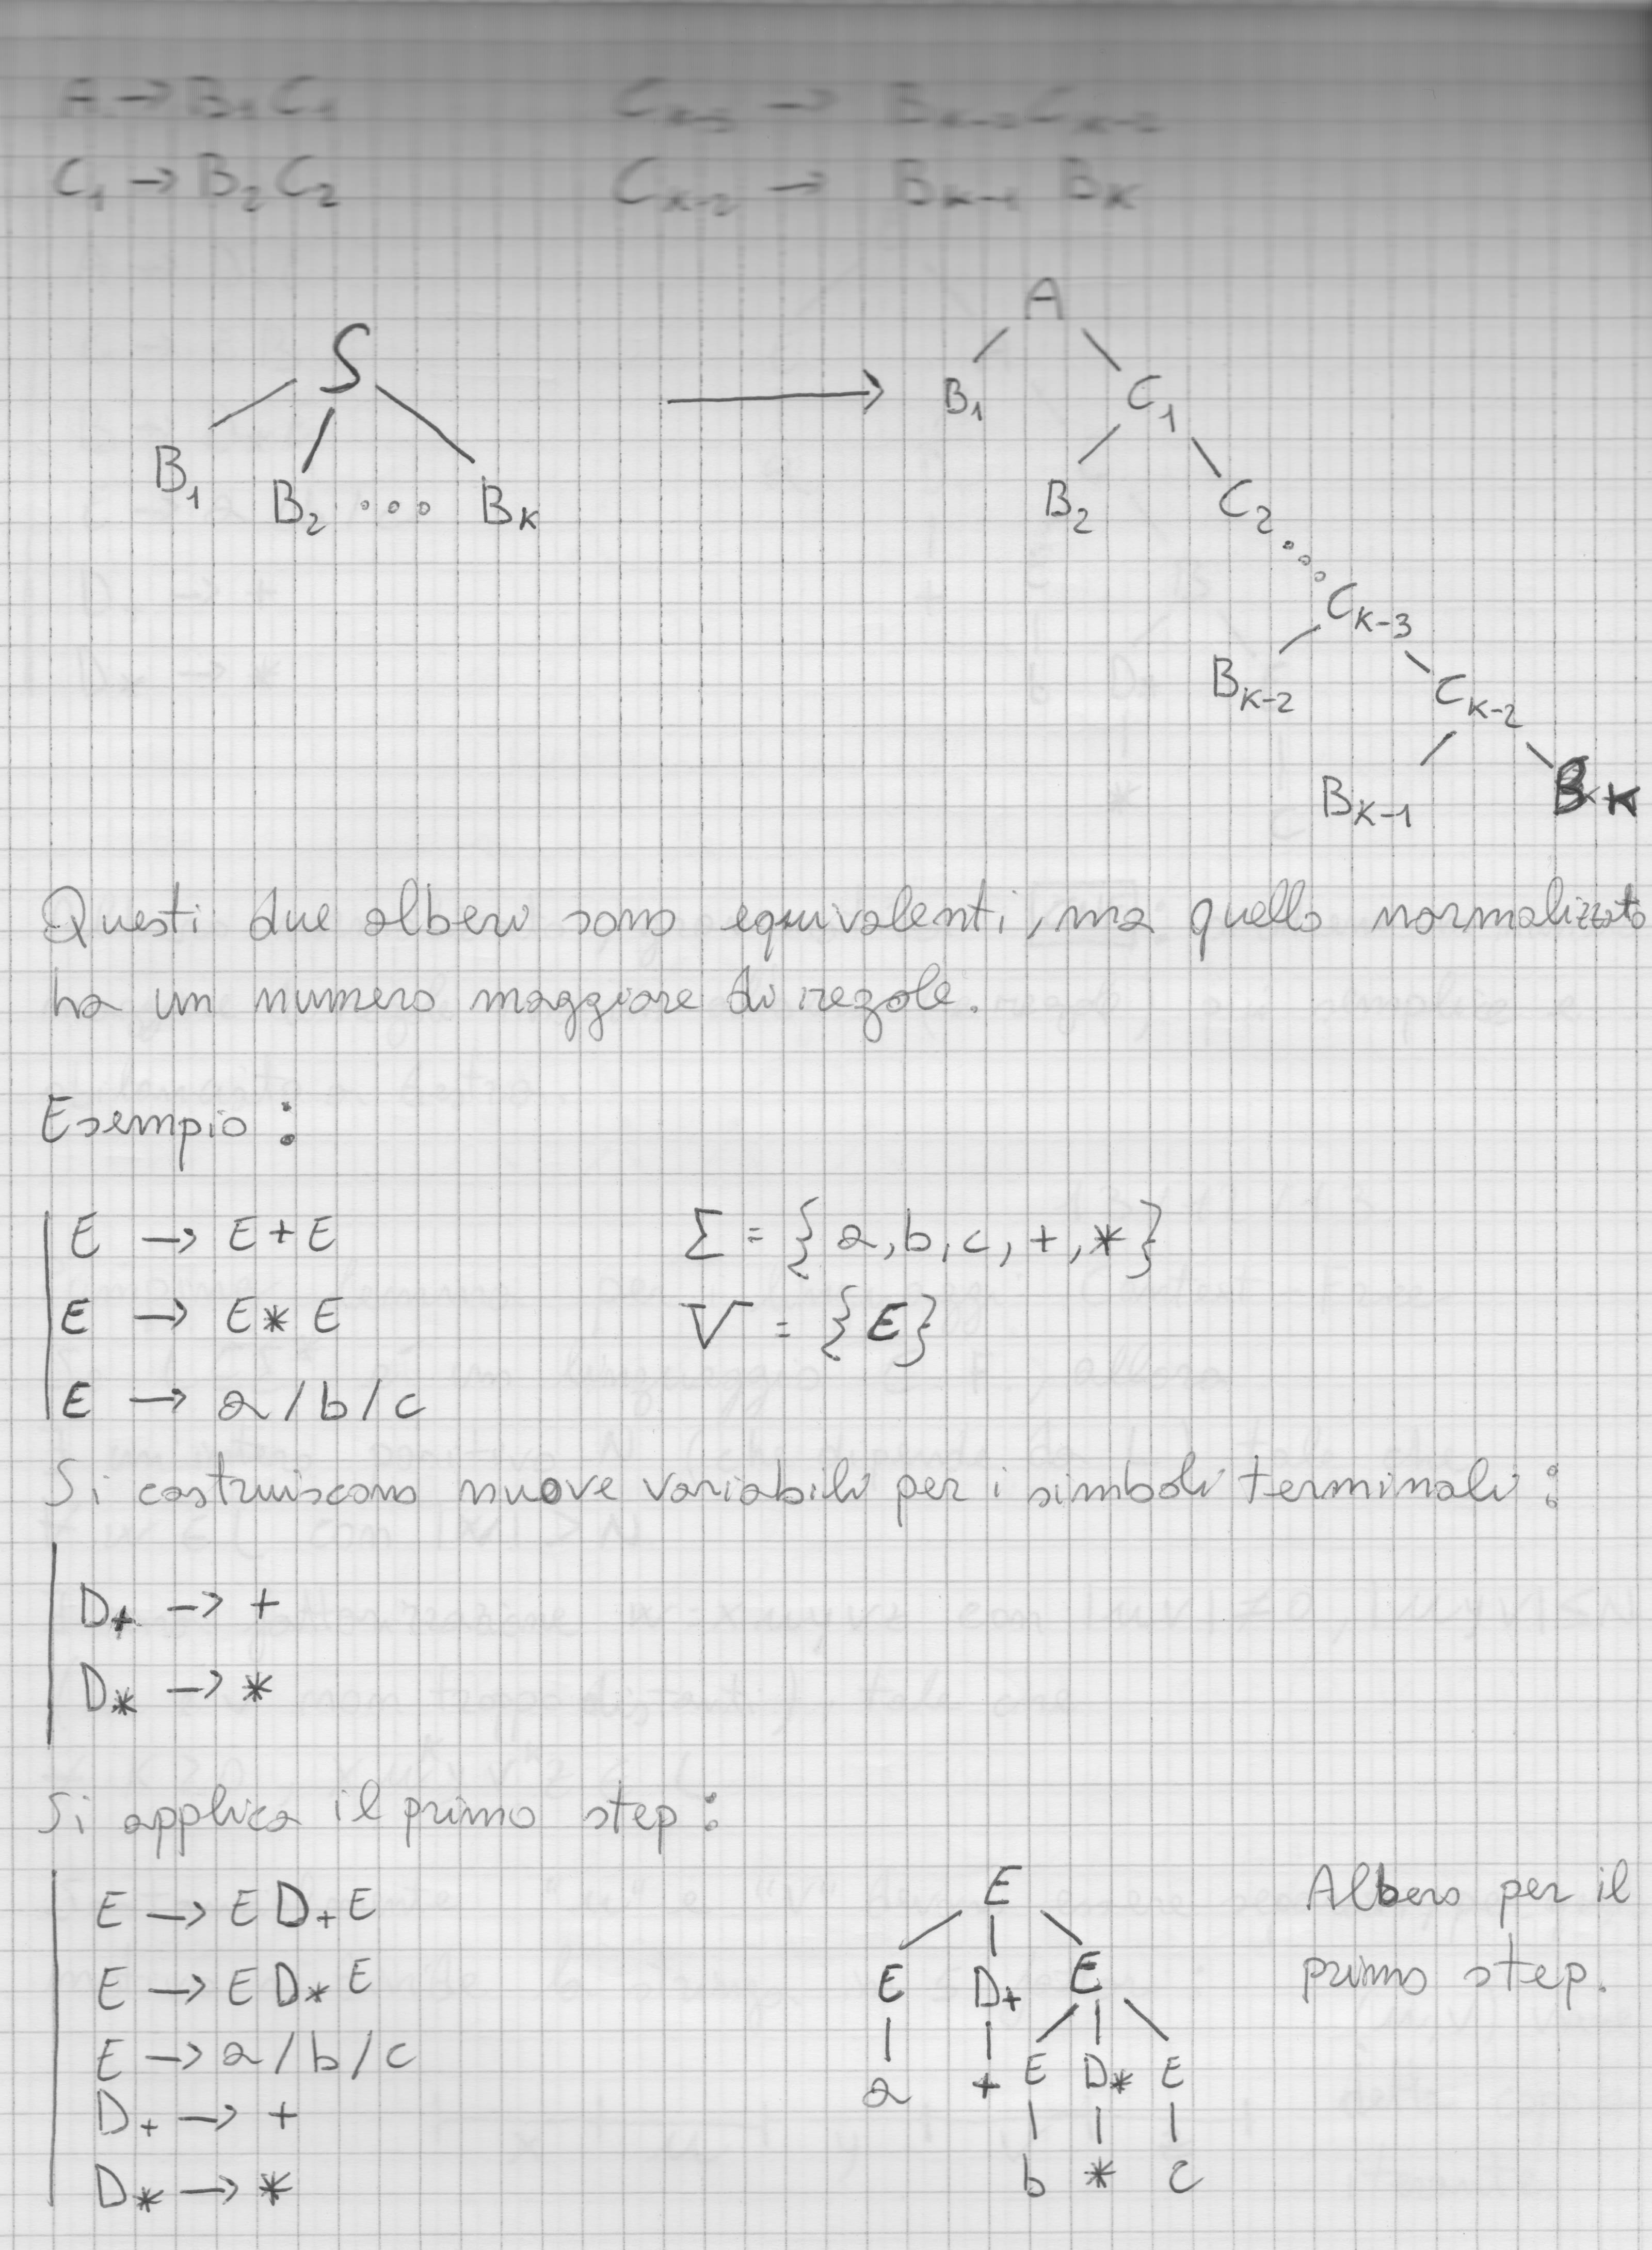 A → B₁C₁ C_{K-3} → B_{K-2}C_{K-2}
C₁ → B₂C₂ C_{K-2} → B_{K-1} B_K
S A
B₁ C₁
B₁ B₂ ... B_K B₂ C₂
...
C_{K-3}
B_{K-2} C_{K-2}
B_{K-1} B_K
Questi due alberi sono equivalenti, ma quello normalizzato
ha un numero maggiore di regole.
Esempio:
E → E+E Σ = {a,b,c,+,*}
E → E*E V = {E}
E → a/b/c
Si costruiscono nuove variabili per i simboli terminali:
D₊ → +
D_* → *
Si applica il primo step:
E → E D₊ E
E → E D_* E
E → a/b/c
D₊ → +
D_* → *
E
E D₊ E
a + E D_* E
b * c
Albero per il
primo step.